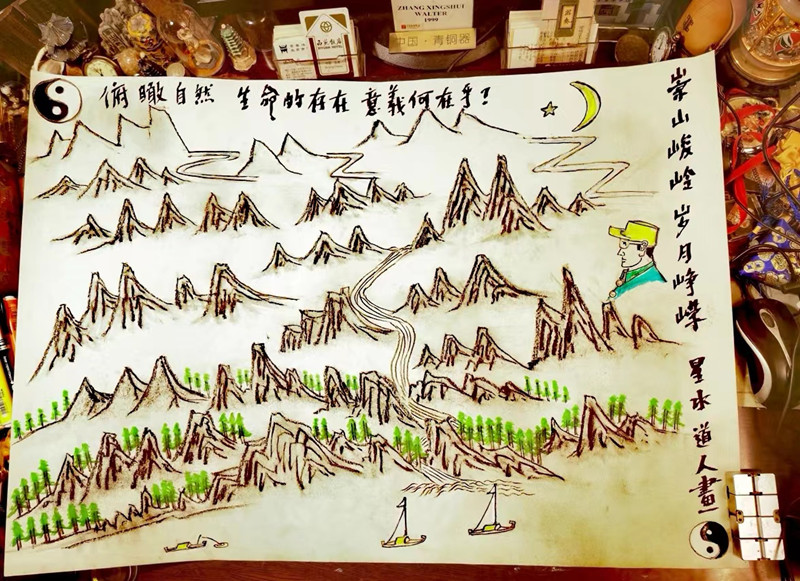 ZHANG XINGSHUI
WALTER
1999
中国·青铜器
俯瞰自然 生命的存在 意义何在乎!
崇山峻岭 岁月峥嵘 星水道人畫